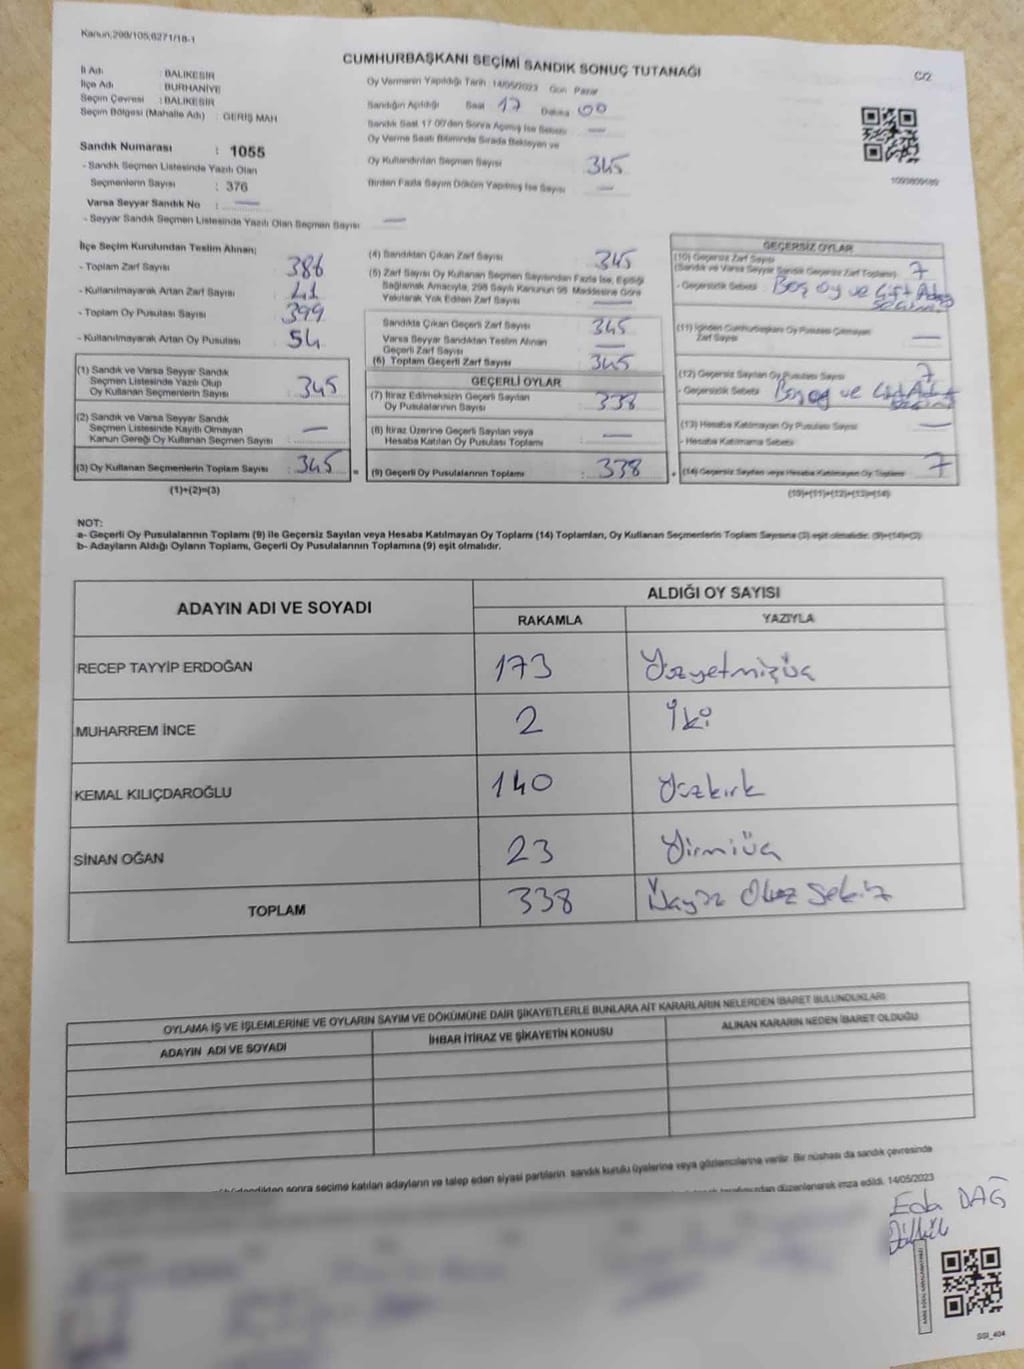 Kanun;298/105;6271/18-1
CUMHURBAŞKANI SEÇİMİ SANDIK SONUÇ TUTANAĞI
C/2
İl Adı : BALIKESİR
İlçe Adı : BURHANİYE
Seçim Çevresi : BALIKESİR
Seçim Bölgesi (Mahalle Adı) : GERİŞ MAH
Sandık Numarası : 1055
- Sandık Seçmen Listesinde Yazılı Olan
Seçmenlerin Sayısı : 376
Varsa Seyyar Sandık No : —
- Seyyar Sandık Seçmen Listesinde Yazılı Olan Seçmen Sayısı —
Oy Vermenin Yapıldığı Tarih 14/05/2023 Gün Pazar
Sandığın Açıldığı Saat 17 Dakika 00
Sandık Saat 17 00'den Sonra Açılmış İse Sebebi —
Oy Verme Saati Bitiminde Sırada Bekleyen ve
Oy Kullandırılan Seçmen Sayısı 345
Birden Fazla Sayım Döküm Yapılmış İse Sayısı —
İlçe Seçim Kurulundan Teslim Alınan;
- Toplam Zarf Sayısı 386
- Kullanılmayarak Artan Zarf Sayısı 41
- Toplam Oy Pusulası Sayısı 399
- Kullanılmayarak Artan Oy Pusulası 54
(1) Sandık ve Varsa Seyyar Sandık
Seçmen Listesinde Yazılı Olup
Oy Kullanan Seçmenlerin Sayısı : 345
(2) Sandık ve Varsa Seyyar Sandık
Seçmen Listesinde Kayıtlı Olmayan
Kanun Gereği Oy Kullanan Seçmen Sayısı : —
(3) Oy Kullanan Seçmenlerin Toplam Sayısı : 345 =
(1)+(2)=(3)
(4) Sandıktan Çıkan Zarf Sayısı 345
(5) Zarf Sayısı Oy Kullanan Seçmen Sayısından Fazla İse, Eşitliği
Sağlamak Amacıyla, 298 Sayılı Kanunun 98. Maddesine Göre
Yakılarak Yok Edilen Zarf Sayısı —
Sandıkta Çıkan Geçerli Zarf Sayısı 345
Varsa Seyyar Sandıktan Teslim Alınan
Geçerli Zarf Sayısı —
(6) Toplam Geçerli Zarf Sayısı 345
GEÇERLİ OYLAR
(7) İtiraz Edilmeksizin Geçerli Sayılan
Oy Pusulalarının Sayısı : 338
(8) İtiraz Üzerine Geçerli Sayılan veya
Hesaba Katılan Oy Pusulası Toplamı : —
(9) Geçerli Oy Pusulalarının Toplamı : 338 +
GEÇERSİZ OYLAR
(10) Geçersiz Zarf Sayısı
(Sandık ve Varsa Seyyar Sandık Geçersiz Zarf Toplamı) 7
- Geçersizlik Sebebi Boş oy ve Çift Aday
seçimi
(11) İçinden Cumhurbaşkanı Oy Pusulası Çıkmayan
Zarf Sayısı —
(12) Geçersiz Sayılan Oy Pusulası Sayısı 7
- Geçersizlik Sebebi Boş oy ve Çift Aday
seçimi
(13) Hesaba Katılmayan Oy Pusulası Sayısı —
- Hesaba Katılmama Sebebi
(14) Geçersiz Sayılan veya Hesaba Katılmayan Oy Toplamı 7
(10)+(11)+(12)+(13)=(14)
NOT:
a- Geçerli Oy Pusulalarının Toplamı (9) ile Geçersiz Sayılan veya Hesaba Katılmayan Oy Toplamı (14) Toplamları, Oy Kullanan Seçmenlerin Toplam Sayısına (3) eşit olmalıdır. (9)+(14)=(3)
b- Adayların Aldığı Oyların Toplamı, Geçerli Oy Pusulalarının Toplamına (9) eşit olmalıdır.
ADAYIN ADI VE SOYADI
ALDIĞI OY SAYISI
RAKAMLA YAZIYLA
RECEP TAYYİP ERDOĞAN 173 Yüzyetmişüç
MUHARREM İNCE 2 İki
KEMAL KILIÇDAROĞLU 140 Yüzkırk
SİNAN OĞAN 23 Yirmiüç
TOPLAM 338 Üçyüz Otuz Sekiz
OYLAMA İŞ VE İŞLEMLERİNE VE OYLARIN SAYIM VE DÖKÜMÜNE DAİR ŞİKAYETLERLE BUNLARA AİT KARARLARIN NELERDEN İBARET BULUNDUKLARI
ADAYIN ADI VE SOYADI İHBAR İTİRAZ VE ŞİKAYETİN KONUSU ALINAN KARARIN NEDEN İBARET OLDUĞU
sonra seçime katılan adayların ve talep eden siyasi partilerin sandık kurulu üyelerine veya gözlemcilerine verilir. Bir nüshası da sandık çevresinde
tarafımızdan düzenlenerek imza edildi. 14/05/2023
Eda DAĞ
SSI_404